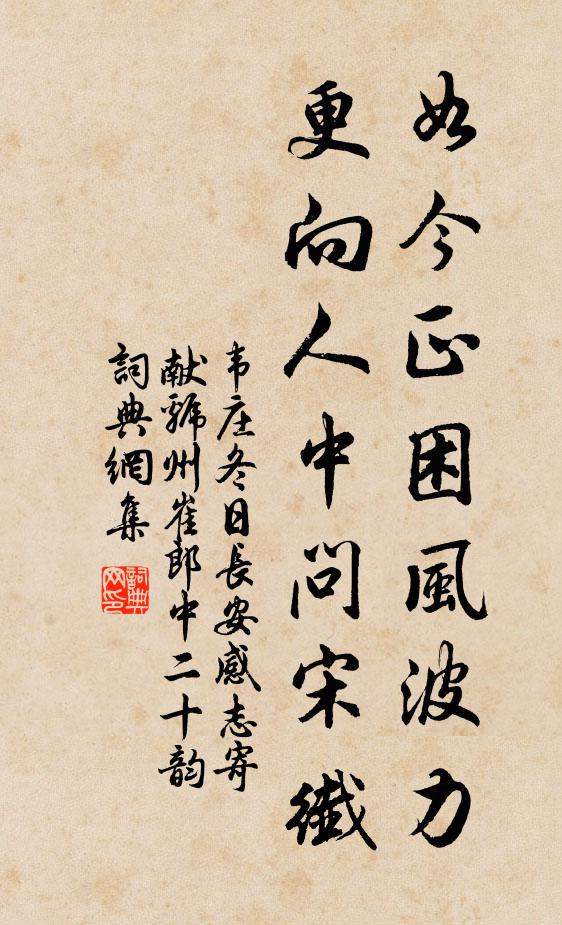 如今正困風波力
更向人中問宋纖
韦庄冬日長安感志寄
献虢州崔郎中二十韵
詞典網集
詞典网印